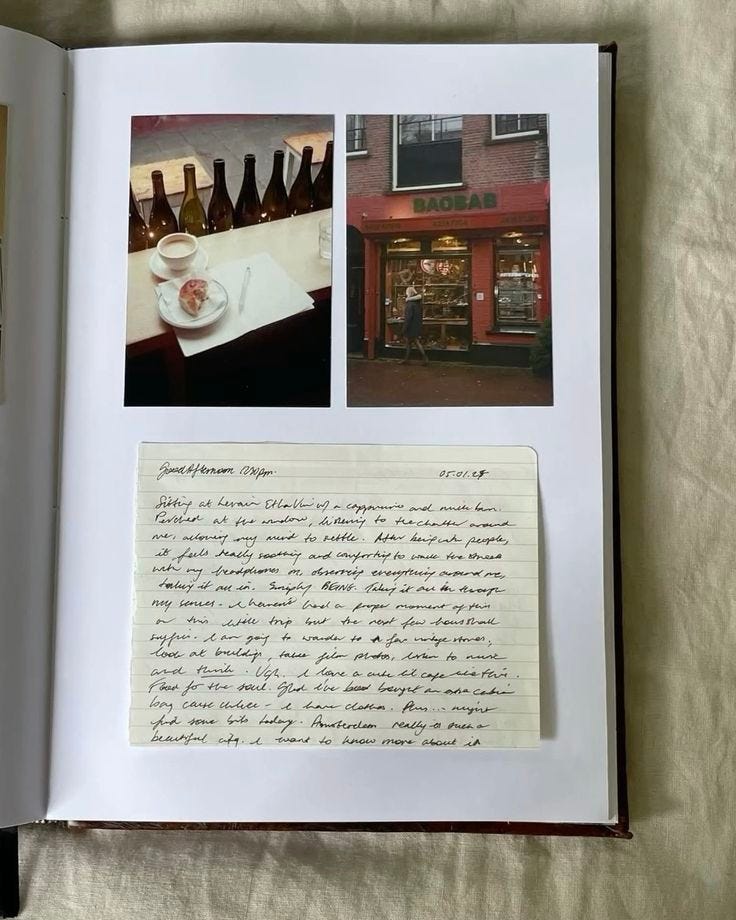 BAOBAB
Good Afternoon 1:30pm. 05.01.25
Sitting at Levain Et Le Vin w/ a cappuccino and nutella bun.
Perched at the window, listening to the chatter around
me, allowing my mind to settle. After being with people,
it feels really soothing and comforting to walk the streets
with my headphones on, observing everything around me,
taking it all in. Simply BEING. Taking it all in through
my senses. I haven't had a proper moment of this
on this little trip but the next few hours shall
suffice. I am going to wander to a few vintage stores,
look at buildings, take film photos, listen to music
and think. Ugh. I love a cute lil cafe like this.
Food for the soul. Glad I've bought an extra cabin
bag cause - I have clothes. Plus... might
find some bits today. Amsterdam really is such a
beautiful city. I want to know more about it